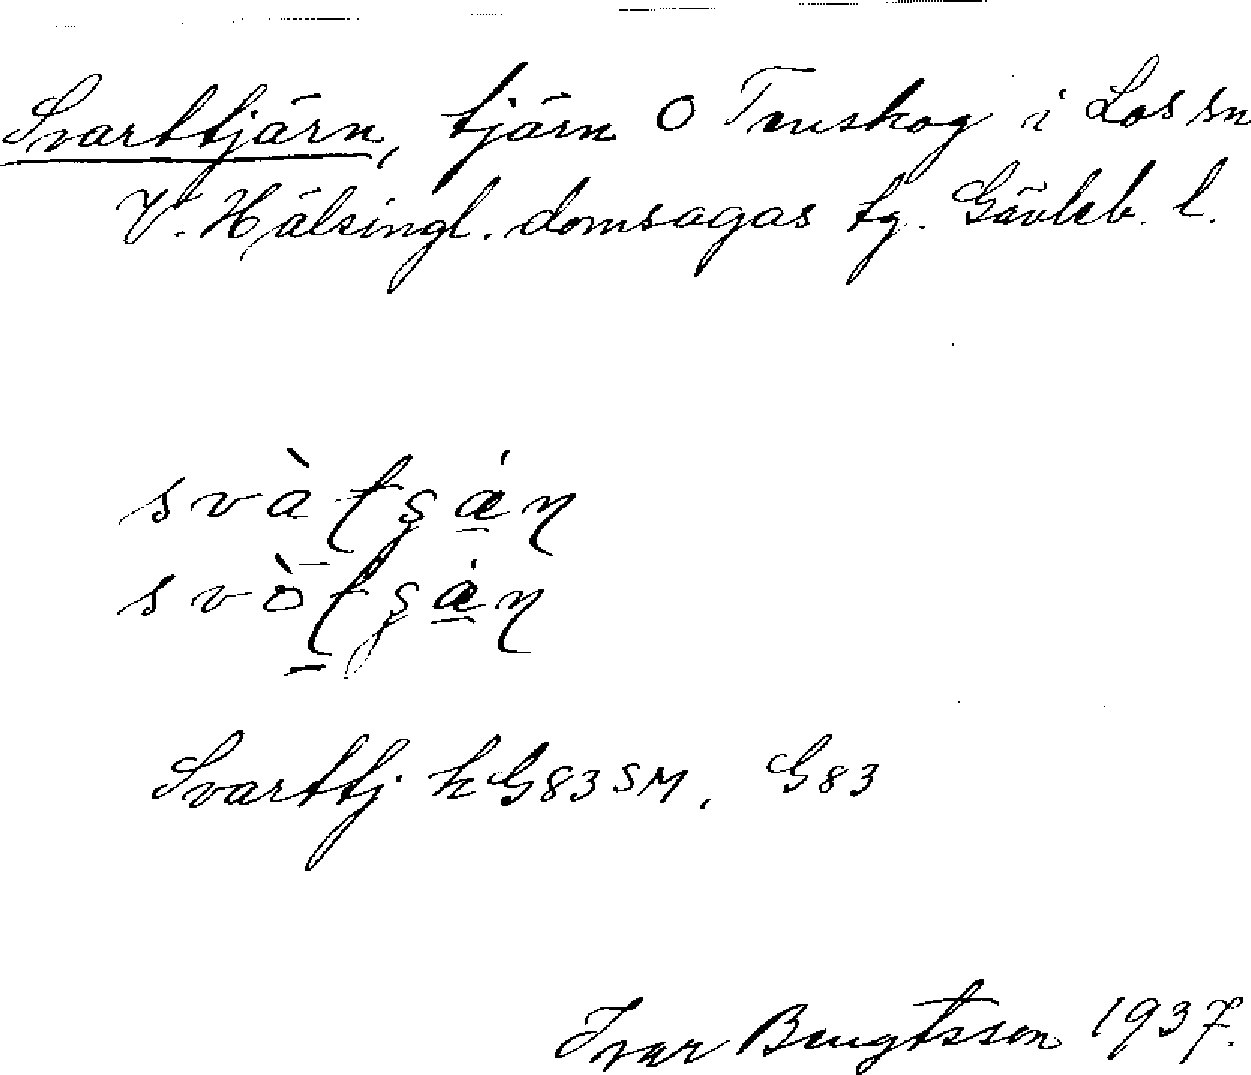 Svarttjärn, tjärn O Tenskog i Los sn
V. Hälsingl. domsagas tg. Gävleb. l.
Svarttj k G83SM, G83
Ivar Bengtsson 1937.